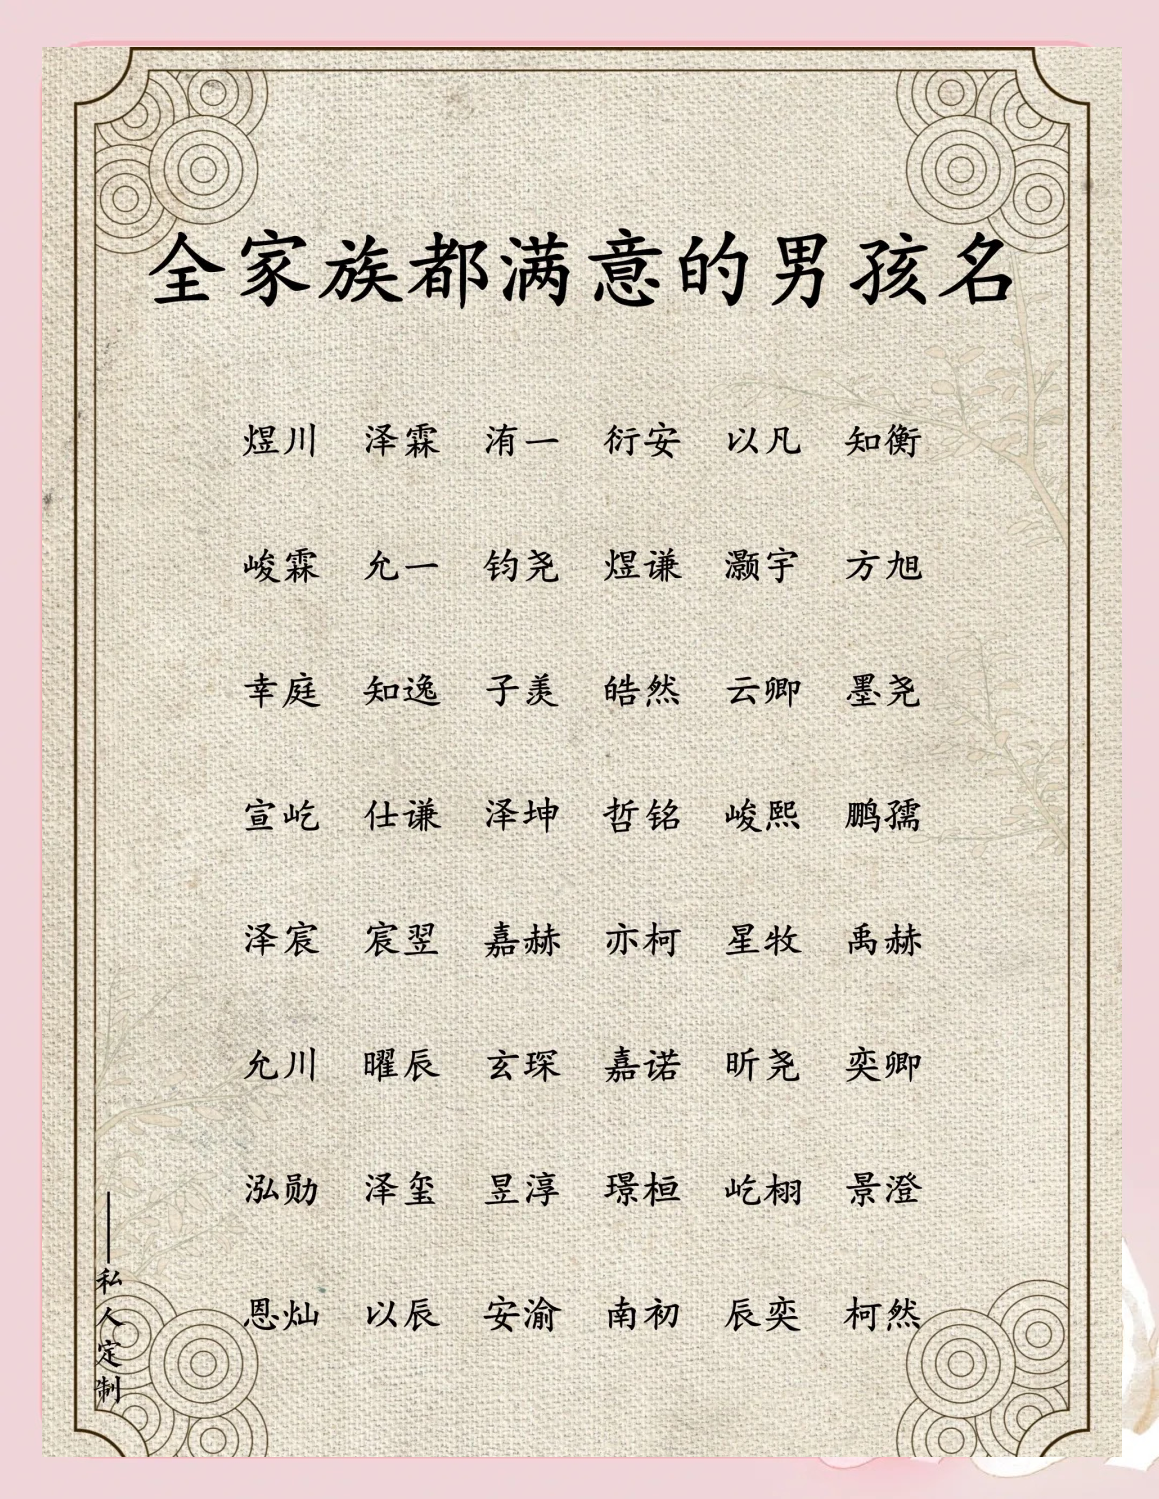 全家族都满意的男孩名
煜川 泽霖 洧一 衍安 以凡 知衡
峻霖 允一 钧尧 煜谦 灏宇 方旭
幸庭 知逸 子羡 皓然 云卿 墨尧
宣屹 仕谦 泽坤 哲铭 峻熙 鹏孺
泽宸 宸翌 嘉赫 亦柯 星牧 禹赫
允川 曜辰 玄琛 嘉诺 昕尧 奕卿
泓勋 泽玺 昱淳 璟桓 屹栩 景澄
恩灿 以辰 安渝 南初 辰奕 柯然
——私人定制